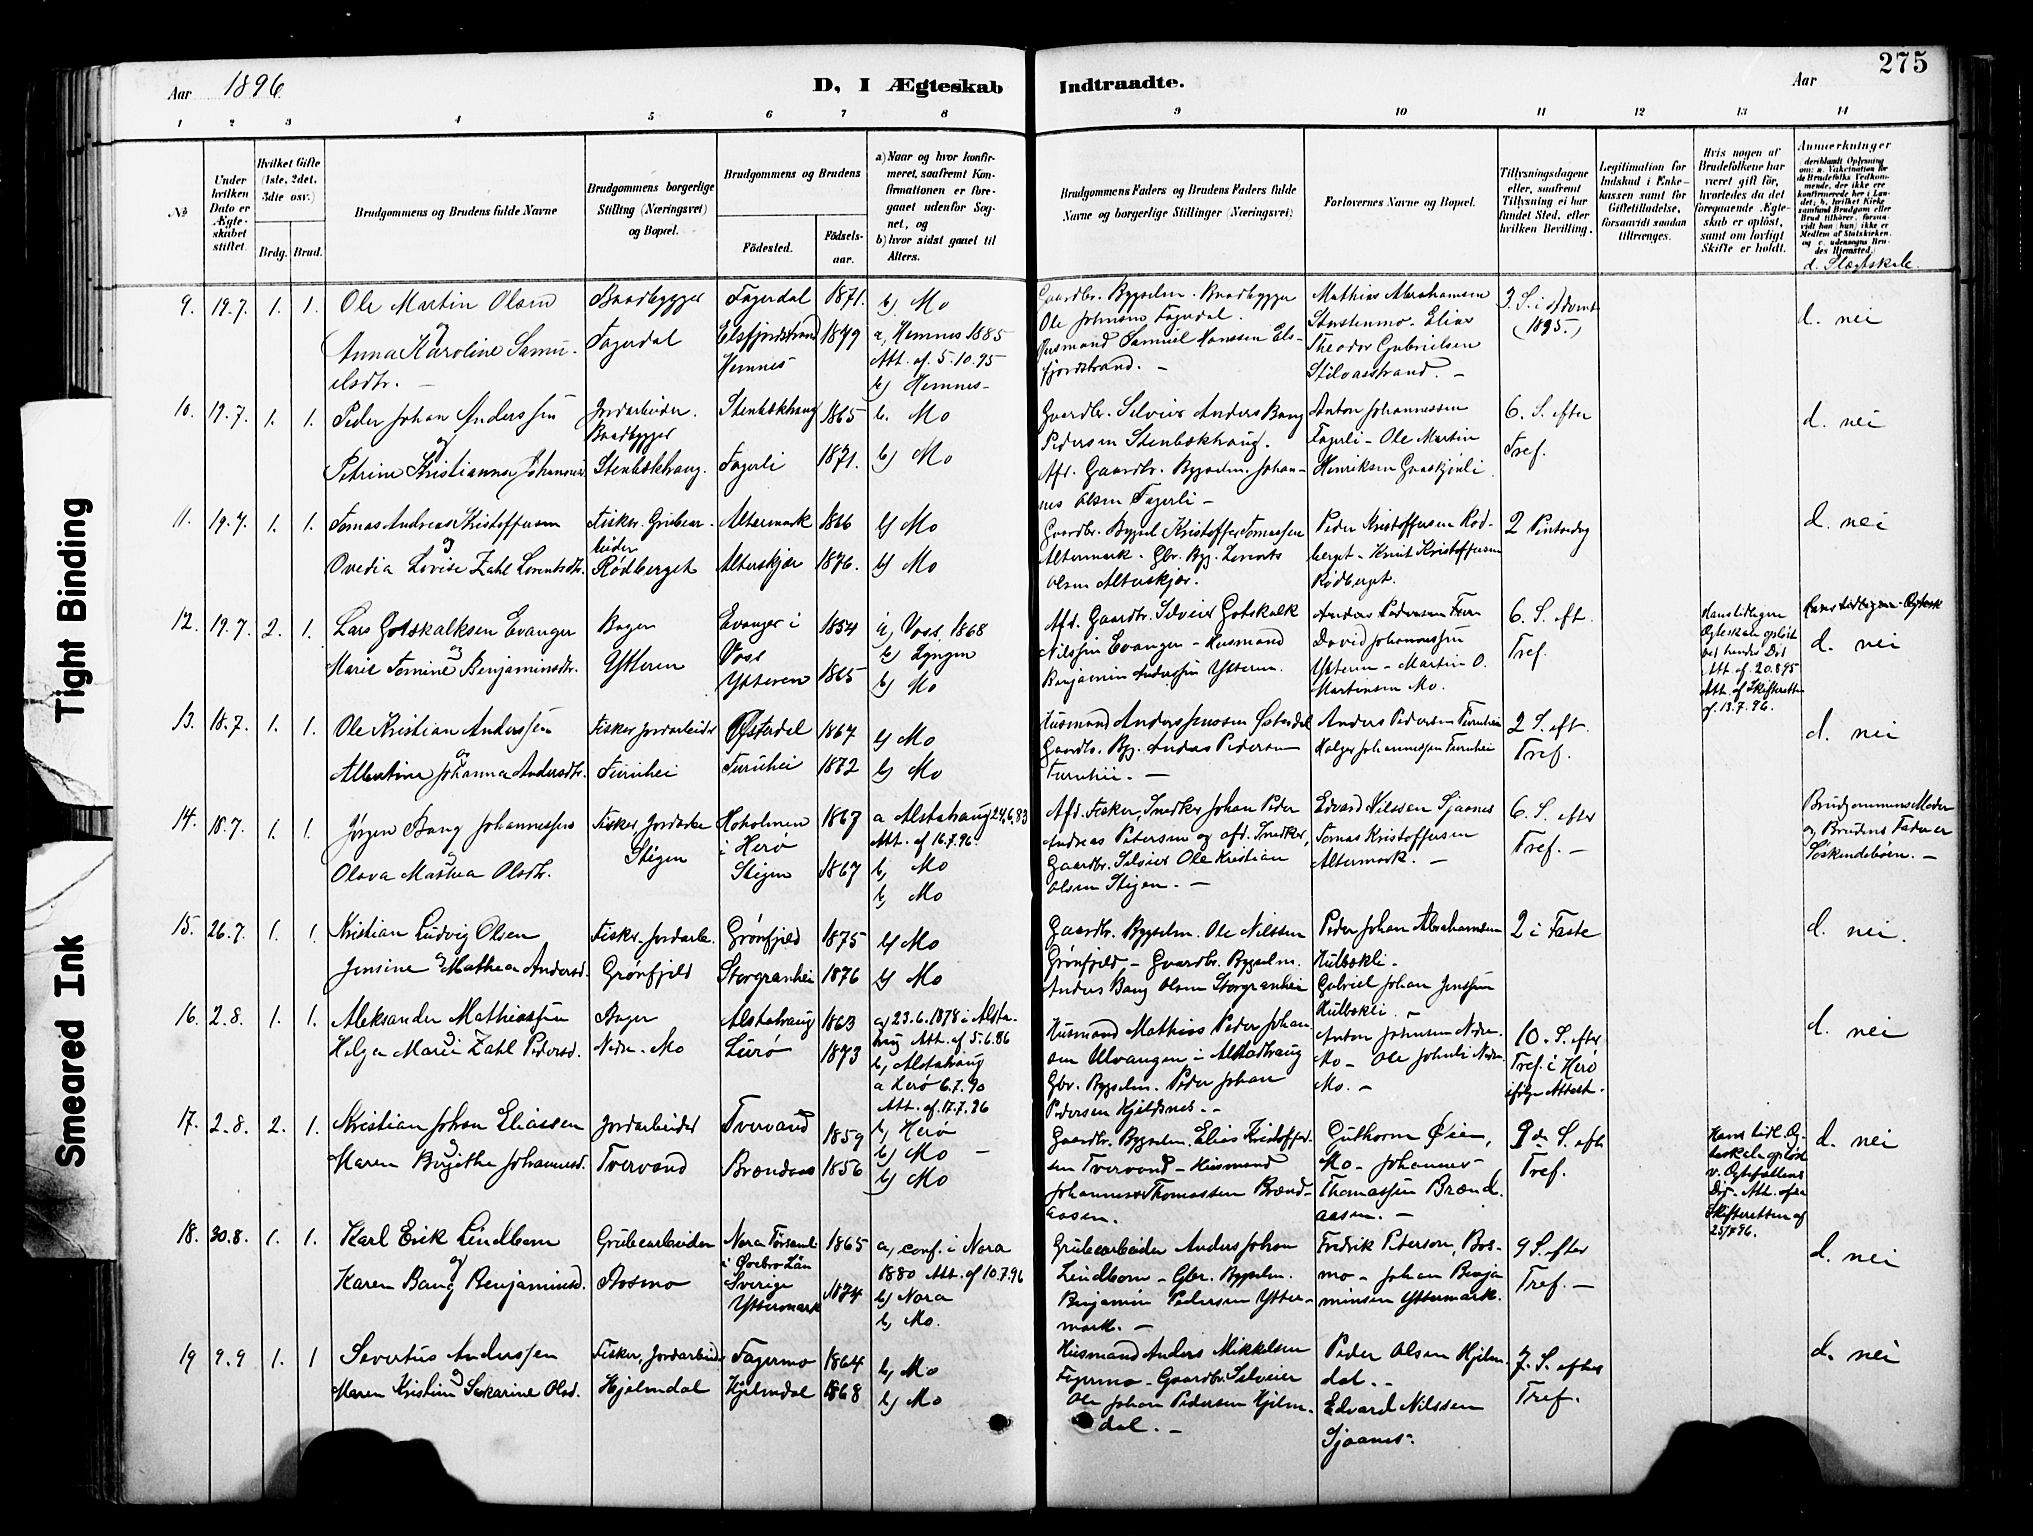 275
Aar 1896
D, I Ægteskab Indtraadte.
Aar
1 2 3 4 5 6 7 8 9 10 11 12 13 14
No
Under hvilken Dato er Ægteskabet stiftet.
Hvilket Gifte (1ste, 2det, 3die osv.)
Brdg. Brud.
Brudgommens og Brudens fulde Navne
Brudgommens borgerlige Stilling (Næringsvei) og Bopæl.
Brudgommens og Brudens
Fødested. Fødselsaar.
a) Naar og hvor konfirmeret, saafremt Konfirmationen er foregaaet udenfor Sognet, og
b) hvor sidst gaaet til Alters.
Brudgommens Faders og Brudens Faders fulde Navne og borgerlige Stillinger (Næringsvei)
Forlovernes Navne og Bopæl.
Tillysningsdagene eller, saafremt Tillysning ei har fundet Sted, efter hvilken Bevilling.
Legitimation for Indskud i Enkekassen samt for Giftetilladelse, forsaavidt saadan tiltrænges.
Hvis nogen af Brudefolkene har været gift før, hvorledes da det foregaaende Ægteskab er opløst, samt om lovligt Skifte er holdt.
Anmærkninger
d. Slægtskab.
9. 19.7. 1. 1. Ole Martin Olsen
og
Anna Karoline Samuelsdtr. —
Baadbygger
Fagerdal
Fagerdal 1871.
Elsfjordstrand 1879
Hemnes
b) Mo
a, Hemnes 1885
Att. af 5.10.95
b) Hemnes—
Gaardbr. Bygselm. Baadbygger
Ole Johnsen Fagerdal.
Husmand Samuel Hanssen Elsfjordstrand. —
Mathias Abrahamsen
Elias
Theodor Gabrielsen
3 S. i Advent
(1895.)
d. nei
10. 19.7. 1. 1. Peder Johan Anderssen
og
Petrine Kristianna
Jordarbeider.
Baadbygger
Stenbækhaug.
Stenbækhaug 1865
Fagerli 1871.
b. Mo
b) Mo
Gaardbr. Selveier Anders Bang
Pedersen Stenbækhaug.
Afd. Gaardbr. Bygselm. Johannes Olsen Fagerli —
Anton Johannessen
Fagerli — Ole Martin
Henriksen
6. S. efter
Tref.
d. nei
11. 19.7. 1. 1. Tomas Andreas Kristoffersen
og
Ovedia Lovise Zahl Lorentsdtr.
Fisker. Grubearbeider
Rødberget
Altermark 1866
Alterskjær 1876.
b) Mo
b) Mo
Gaardbr. Bygsel Kristoffer Tomassen
Altermark — Gbr. Byg. Lorents
Olsen Alterskjær.
Peder Kristoffersen Rødberget — Knut Kristoffersen
Rødberget.
2 Pintsedag
d. nei
12. 19.7. 2. 1. Lars Gotskalksen Evanger
og
Marie Tomine Benjaminsdtr.
Bager
Ytteren
Evanger i 1854
Voss
Ytteren 1865
a, Voss 1868
b) Lyngen
b) Mo
Afd. Gaardbr. Selveier Gotskalk
Nilssen Evanger — Husmand
Benjamin Anderssen Ytteren.
Anders Pedersen
David Johannessen
Ytteren — Martin O.
Martinsen Mo.
6. S. eft.
Tref.
Hans tidligere
Egteskab opløst
ved hendes Død
Att. af 20.8.95
Att. af Skifteretten
af 13.7.96.
d. nei
13. 18.7. 1. 1. Ole Kristian Anderssen
og
Albertine Johanna Andersdtr.
Fisker Jordarbeider
Furuhei
Østerdal 1867
Furuhei 1872
b) Mo
b) Mo
Husmand Anders Jenssen Østerdal
Gaardbr. Byg. Anders Pedersen
Furuhei. —
Anders Pedersen Furuhei
Holger Johannessen Furuhei
2 S. eft.
Tref.
d. nei
14. 18.7. 1. 1. Jørgen Bang Johannessen
og
Olava Mathea Olsdtr.
Fisker, Jordarbe
Stigen
Hoholmen 1867
i Herø
Stigen 1867
a Alstahaug 24.6.83
Att. af 16.7.96.
b, Mo
b, Mo
Afd. Fisker, Snedker Johan Peder
Andreas Petersen og afd. Snedker,
Gaardbr. Selveier Ole Kristian
Olsen Stigen. —
Edvard Nilssen Sjaanes
Tomas Kristoffersen
Altermark. —
6. S. efter
Tref. —
Brudgommens Moder
og Brudens Fader er
Søskendebørn. —
15. 26.7. 1. 1. Kristian Ludvig Olsen
og
Jensine Mathea Andersd.
Fisker-Jordarbe.
Grønfjeld
Grønfjeld 1875
Storgranhei 1876
b) Mo
b) Mo
Gaardbr. Bygselm. Ole Nilssen
Grønfjeld — Gaardbr. Bygselm.
Anders Bang Olsen Storgranhei
Peder Johan Abrahamsen
Hulbækli.
Gabriel Johan Jenssen
Hulbækli. —
2 i Faste
d. nei.
16. 2.8. 1. 1. Aleksander Mathiassen
og
Helga Marie Zahl Pedersd.
Bager
Nedre-Mo
Alstahaug 1863
Lurø 1873
a) 23.6.1878 i Alstahaug Att. af 5.6.86
b, Alstahaug
a Herø 6.7.90
Att. af 17.7.96
b, Herø
Husmand Mathias Peder Johansen Ulvangen i Alstadhaug
Gbr. Bygselm. Peder Johan
Pedersen Hjeldsnes. —
Anton Johnsen Nedre-Mo — Ole Nedre
Mo. —
10. S. efter
Tref. i Herø
ifølge Attest.
d. nei
17. 2.8. 2. 1. Kristian Johan Eliassen
og
Maren Birgithe Johannesd.
Jordarbeider
Tvervand
Tvervand 1859
Brændaas 1856
b) Mo —
b) Mo
Gaardbr. Bygselm. Elias Kristoffersen Tvervand — Husmand
Johannes Thomassen Brændaasen.
Guthorm Øien,
Mo — Johannes
Thomassen Brændaasen. —
9de S. eft
Tref.
Hans tidl. Egteskab opløst
v. Egtefællens
Død. Att. fra
Skifteretten af
25/7 96.
d. nei
18. 30.8. 1. 1. Karl Erik Lindbom
og
Karen Bang Benjaminsd.
Grubearbeider
Bosmo
Nora Församl. 1865
i Örebro Län
Sverige
Yttermark 1874
a, conf. i Nora
1880 Att. af 10.7.96
b) Nora
b, Mo.
Grubearbeider Anders Johan
Lindbom — Gbr. Bygselm.
Benjamin Pedersen Yttermark. —
Fredrik Peterson, Bosmo — Johan Benjaminsen Yttermark.
9 S. efter
Tref. —
d. nei
19 9.9 1. 1 Severtus Anderssen
og
Maren Kristine Sakarine Olsd.
Fisker, Jordarbeider
Hjelmdal
Fagermo 1864
Hjelmdal 1868
b, Mo
b) Mo
Husmand Anders Mikkelsen
Fagermo — Gaardbr. Selveier
Ole Johan Pedersen Hjelmdal. —
Peder Olsen Hjelmdal. —
Edvard Nilssen
Sjaanes.
7. S. efter
Tref.
d. nei
Tight Binding
Smeared Ink